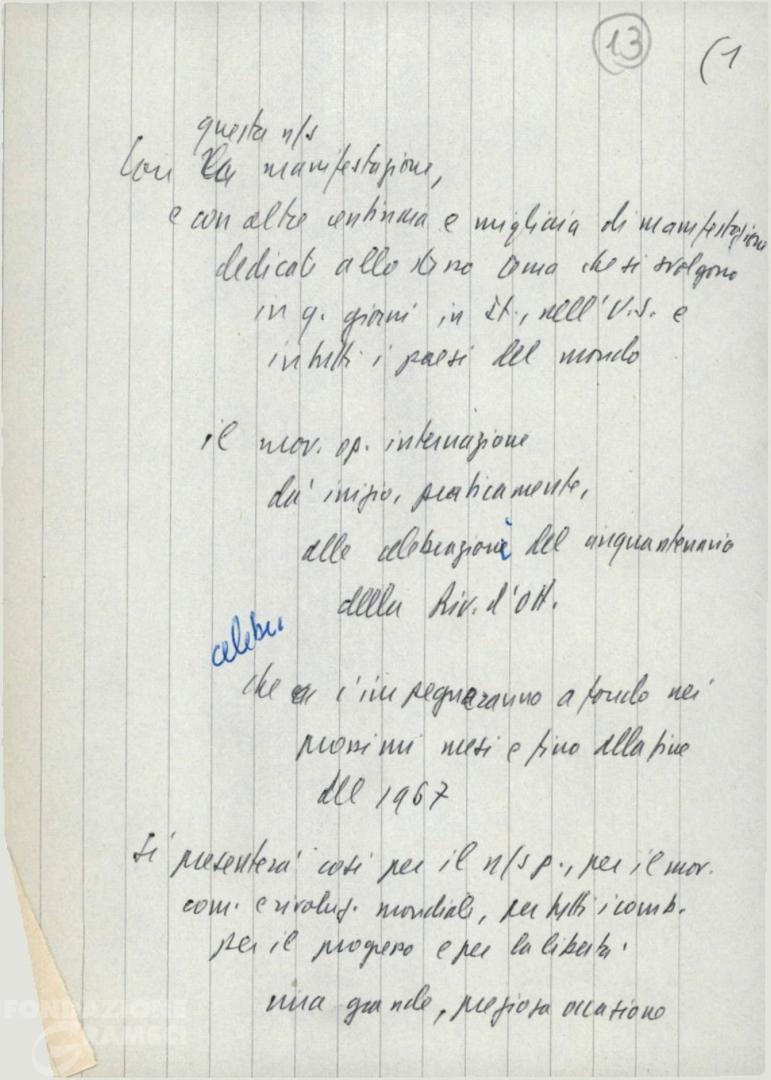 13
(1
questa n/s
Con la manifestazione,
e con altre centinaia e migliaia di manifestazione
dedicati allo stesso tema che si svolgono
in q. giorni in It., nell'U.S. e
in tutti i paesi del mondo
il mov. op. internazione
da' inizio, praticamente,
alle celebrazioni del cinquantenario
della Riv. d'Ott.
celebr.
che ci impegneranno a fondo nei
prossimi mesi e fino alla fine
del 1967
Si presentera' cosi per il n/s p., per il mov.
com. e rivoluz. mondiale, per tutti i comb.
per il progresso e per la liberta'
una grande, preziosa occasione
FONDAZIONE
GRAMSCI